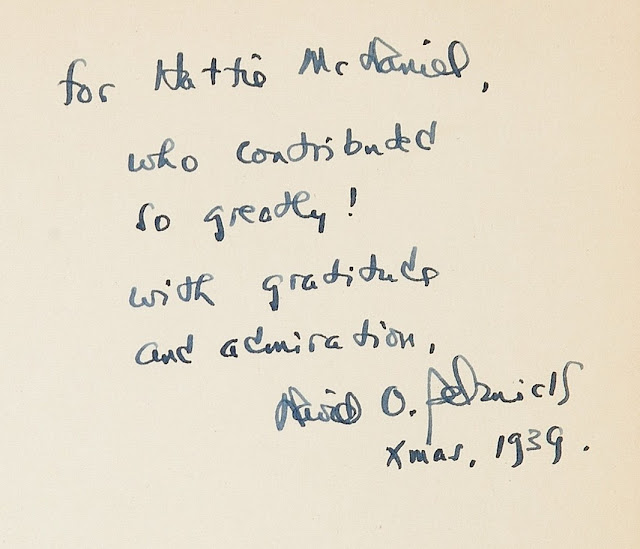 for Hattie McDaniel,
who contributed
so greatly!
with gratitude
and admiration,
David O. Selznick
Xmas, 1939.